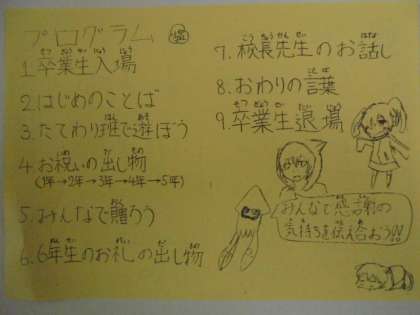 プログラム
1.卒業生入場
2.はじめのことば
3.たてわり班で遊ぼう
4.お祝いの出し物
(1年→2年→3年→4年→5年)
5.みんなで贈ろう
6.6年生のお礼の出し物
7.校長先生のお話し
8.おわりの言葉
9.卒業生退場
みんなで感謝の
気持ちを伝え合おう!!